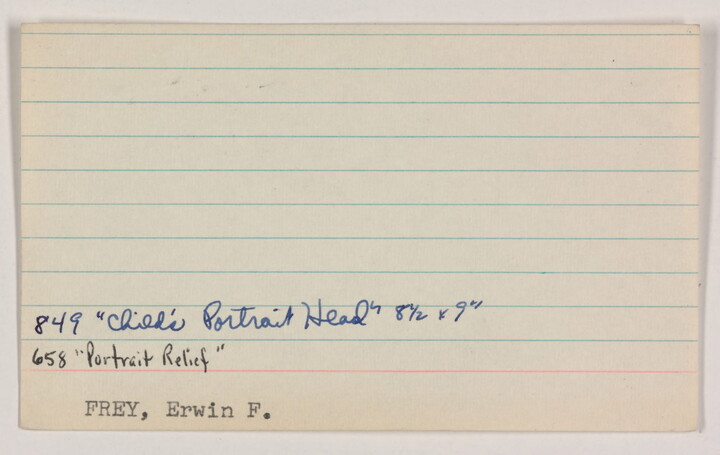 849 "Child's Portrait Head" 8½ x 9"
658 "Portrait Relief"
FREY, Erwin F.